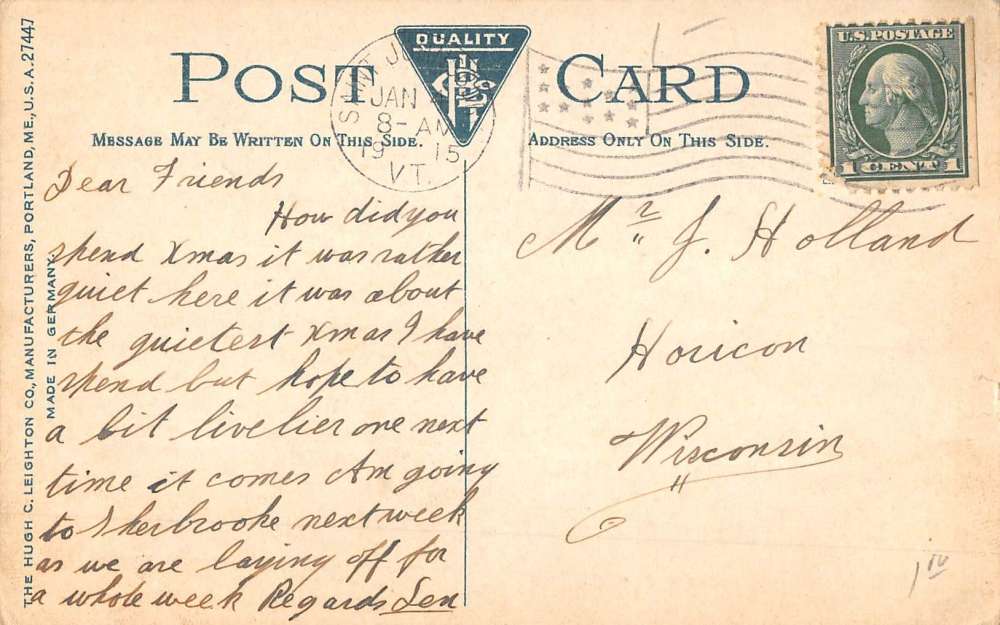 QUALITY
POST CARD
MESSAGE MAY BE WRITTEN ON THIS SIDE.
ADDRESS ONLY ON THIS SIDE.
JAN
8-AM
19 15
VT.
U.S. POSTAGE
1 CENT 1
THE HUGH C. LEIGHTON CO., MANUFACTURERS, PORTLAND, ME., U.S.A. 27447
MADE IN GERMANY.
Dear Friends
How did you
spend Xmas it was rather
quiet here it was about
the quietest Xmas I have
spend but hope to have
a bit livelier one next
time it comes Am going
to Sherbrooke next week
as we are laying off for
a whole week Regards Len
Mr J. Holland
Horicon
Wisconsin